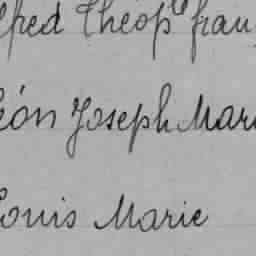 lfred Théop^le fran
éon Joseph Mari
Louis Marie